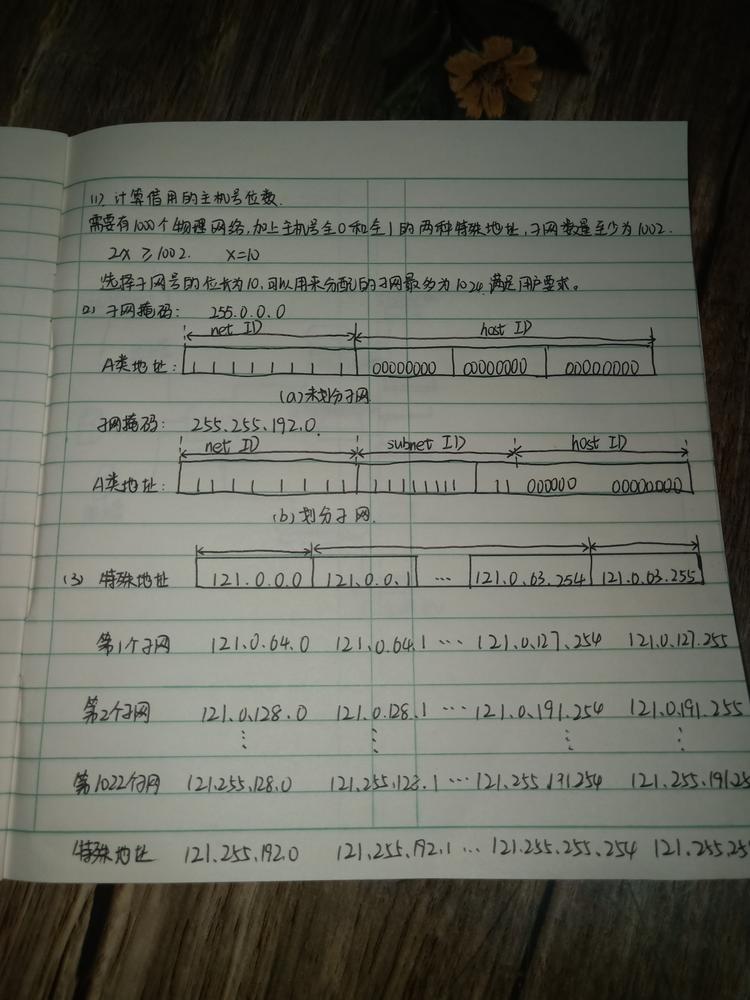 (1) 计算借用的主机号位数.
需要有1000个物理网络,加上主机号全0和全1的两种特殊地址,子网数量至少为1002.
2x ≥1002. x=10
选择子网号的位长为10,可以用来分配的子网最多为1024,满足用户要求。
(2) 子网掩码: 255.0.0.0
net ID host ID
A类地址: 1 1 1 1 1 1 1 1 00000000 00000000 00000000
(a)未划分子网
子网掩码: 255.255.192.0.
net ID subnet ID host ID
A类地址: 1 1 1 1 1 1 1 1 11111111 11 000000 00000000
(b)划分子网.
(3) 特殊地址 121.0.0.0 121.0.0.1 … 121.0.63.254 121.0.63.255
第1个子网 121.0.64.0 121.0.64.1 … 121.0.127.254 121.0.127.255
第2个子网 121.0.128.0 121.0.128.1 … 121.0.191.254 121.0.191.255
⋮ ⋮ ⋮ ⋮
第1022个子网 121.255.128.0 121.255.128.1 … 121.255.191.254 121.255.191.25
特殊地址 121.255.192.0 121.255.192.1 … 121.255.255.254 121.255.25